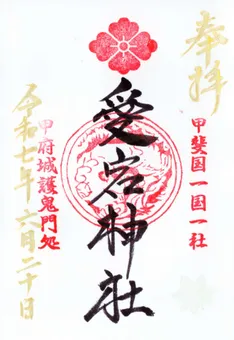 奉拝
甲斐国一国一社
愛宕神社
甲府城護鬼門処
令和七年六月二十日